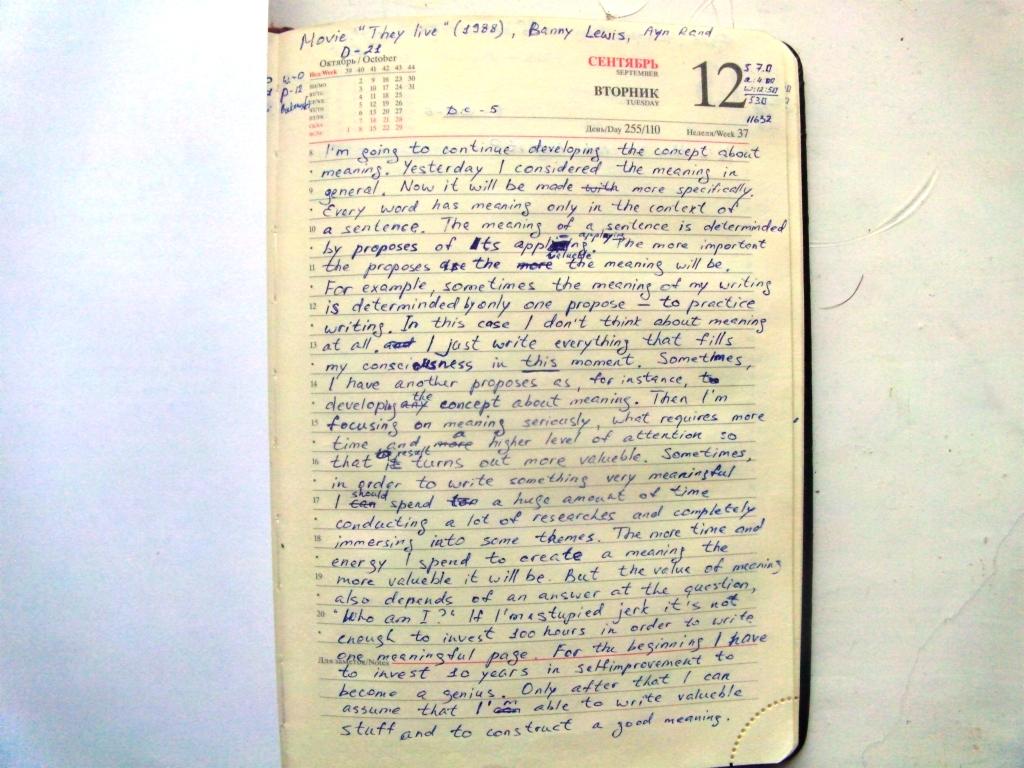 Movie "They live" (1988), Banny Lewis, Ayn Rand
D-21
Октябрь / October
Нед/Week 39 40 41 42 43 44
2 9 16 23 30
3 10 17 24 31
4 11 18 25
5 12 19 26
6 13 20 27
7 14 21 28
1 8 15 22 29
P-12
D.C. - 5
СЕНТЯБРЬ
SEPTEMBER
ВТОРНИК
TUESDAY
12
S 7.0
a: 4:00
W: 12:50
530
11652
День/Day 255/110 Неделя/Week 37
8 I'm going to continue developing the concept about
meaning. Yesterday I considered the meaning in
9 general. Now it will be made with more specifically.
Every word has meaning only in the context of
10 a sentence. The meaning of a sentence is determinded
by proposes of Its applying. The more important
11 the proposes are the more valueble the meaning will be.
For example, sometimes the meaning of my writing
12 is determinded by only one propose – to practice
writing. In this case I don't think about meaning
13 at all. and I just write everything that fills
my consciousness in this moment. Sometimes,
14 I have another proposes as, for instance, to
developing any the concept about meaning. Then I'm
15 focusing on meaning seriously, what requires more
time and more a higher level of attention so
16 that it result turns out more valueble. Sometimes,
in order to write something very meaningful
17 I can should spend too a huge amount of time
conducting a lot of researches and completely
18 immersing into some themes. The more time and
energy I spend to create a meaning the
19 more valueble it will be. But the value of meaning
also depends of an answer at the question,
20 "Who am I?" If I'm a stupied jerk it's not
enough to invest 100 hours in order to write
one meaningful page. For the beginning I have
Для заметок/Notes
to invest 10 years in selfimprovement to
become a genius. Only after that I can
assume that I'm able to write valueble
stuff and to construct a good meaning.